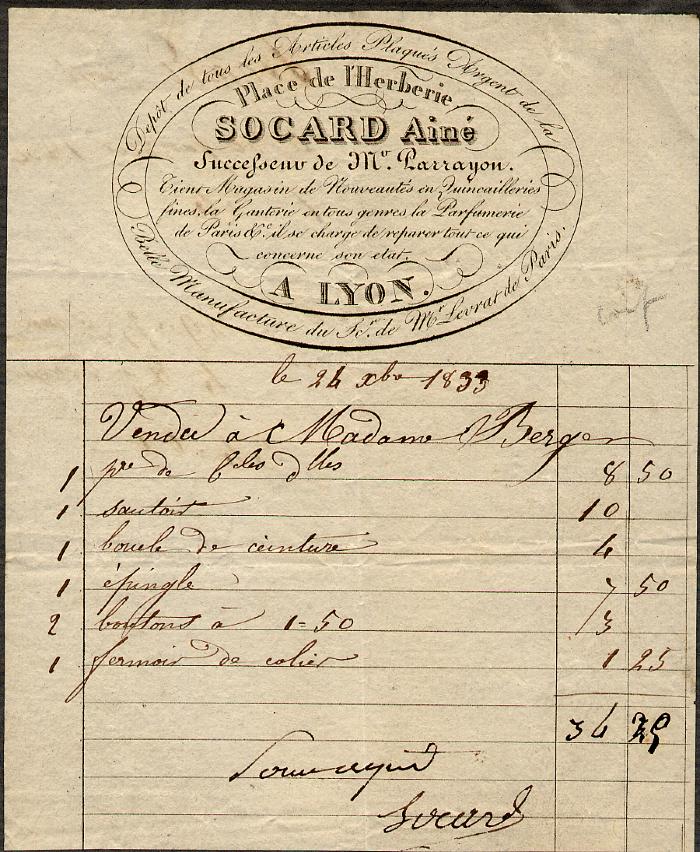 Depôt de tous les Articles Plaqués Argent de la
Place de l'Herberie
SOCARD Ainé
Successeur de Mr. Parrayon.
Tient Magasin de Nouveautés en Quincailleries
fines, la Ganterie en tous genres, la Parfumerie
de Paris &c. il se charge de reparer tout ce qui
concerne son etat.
A LYON.
Belle Manufacture du Sr. de Mr. Levrat de Paris.
le 24 xbre 1833
Vendu à Madame Berger
1 pre de 8 50
1 sautoir 10
1 boucle de ceinture 4
1 épingle 7 50
2 boutons à 1=50 3
1 fermoir de colier 1 25
34 25
Pour acquit
Socard